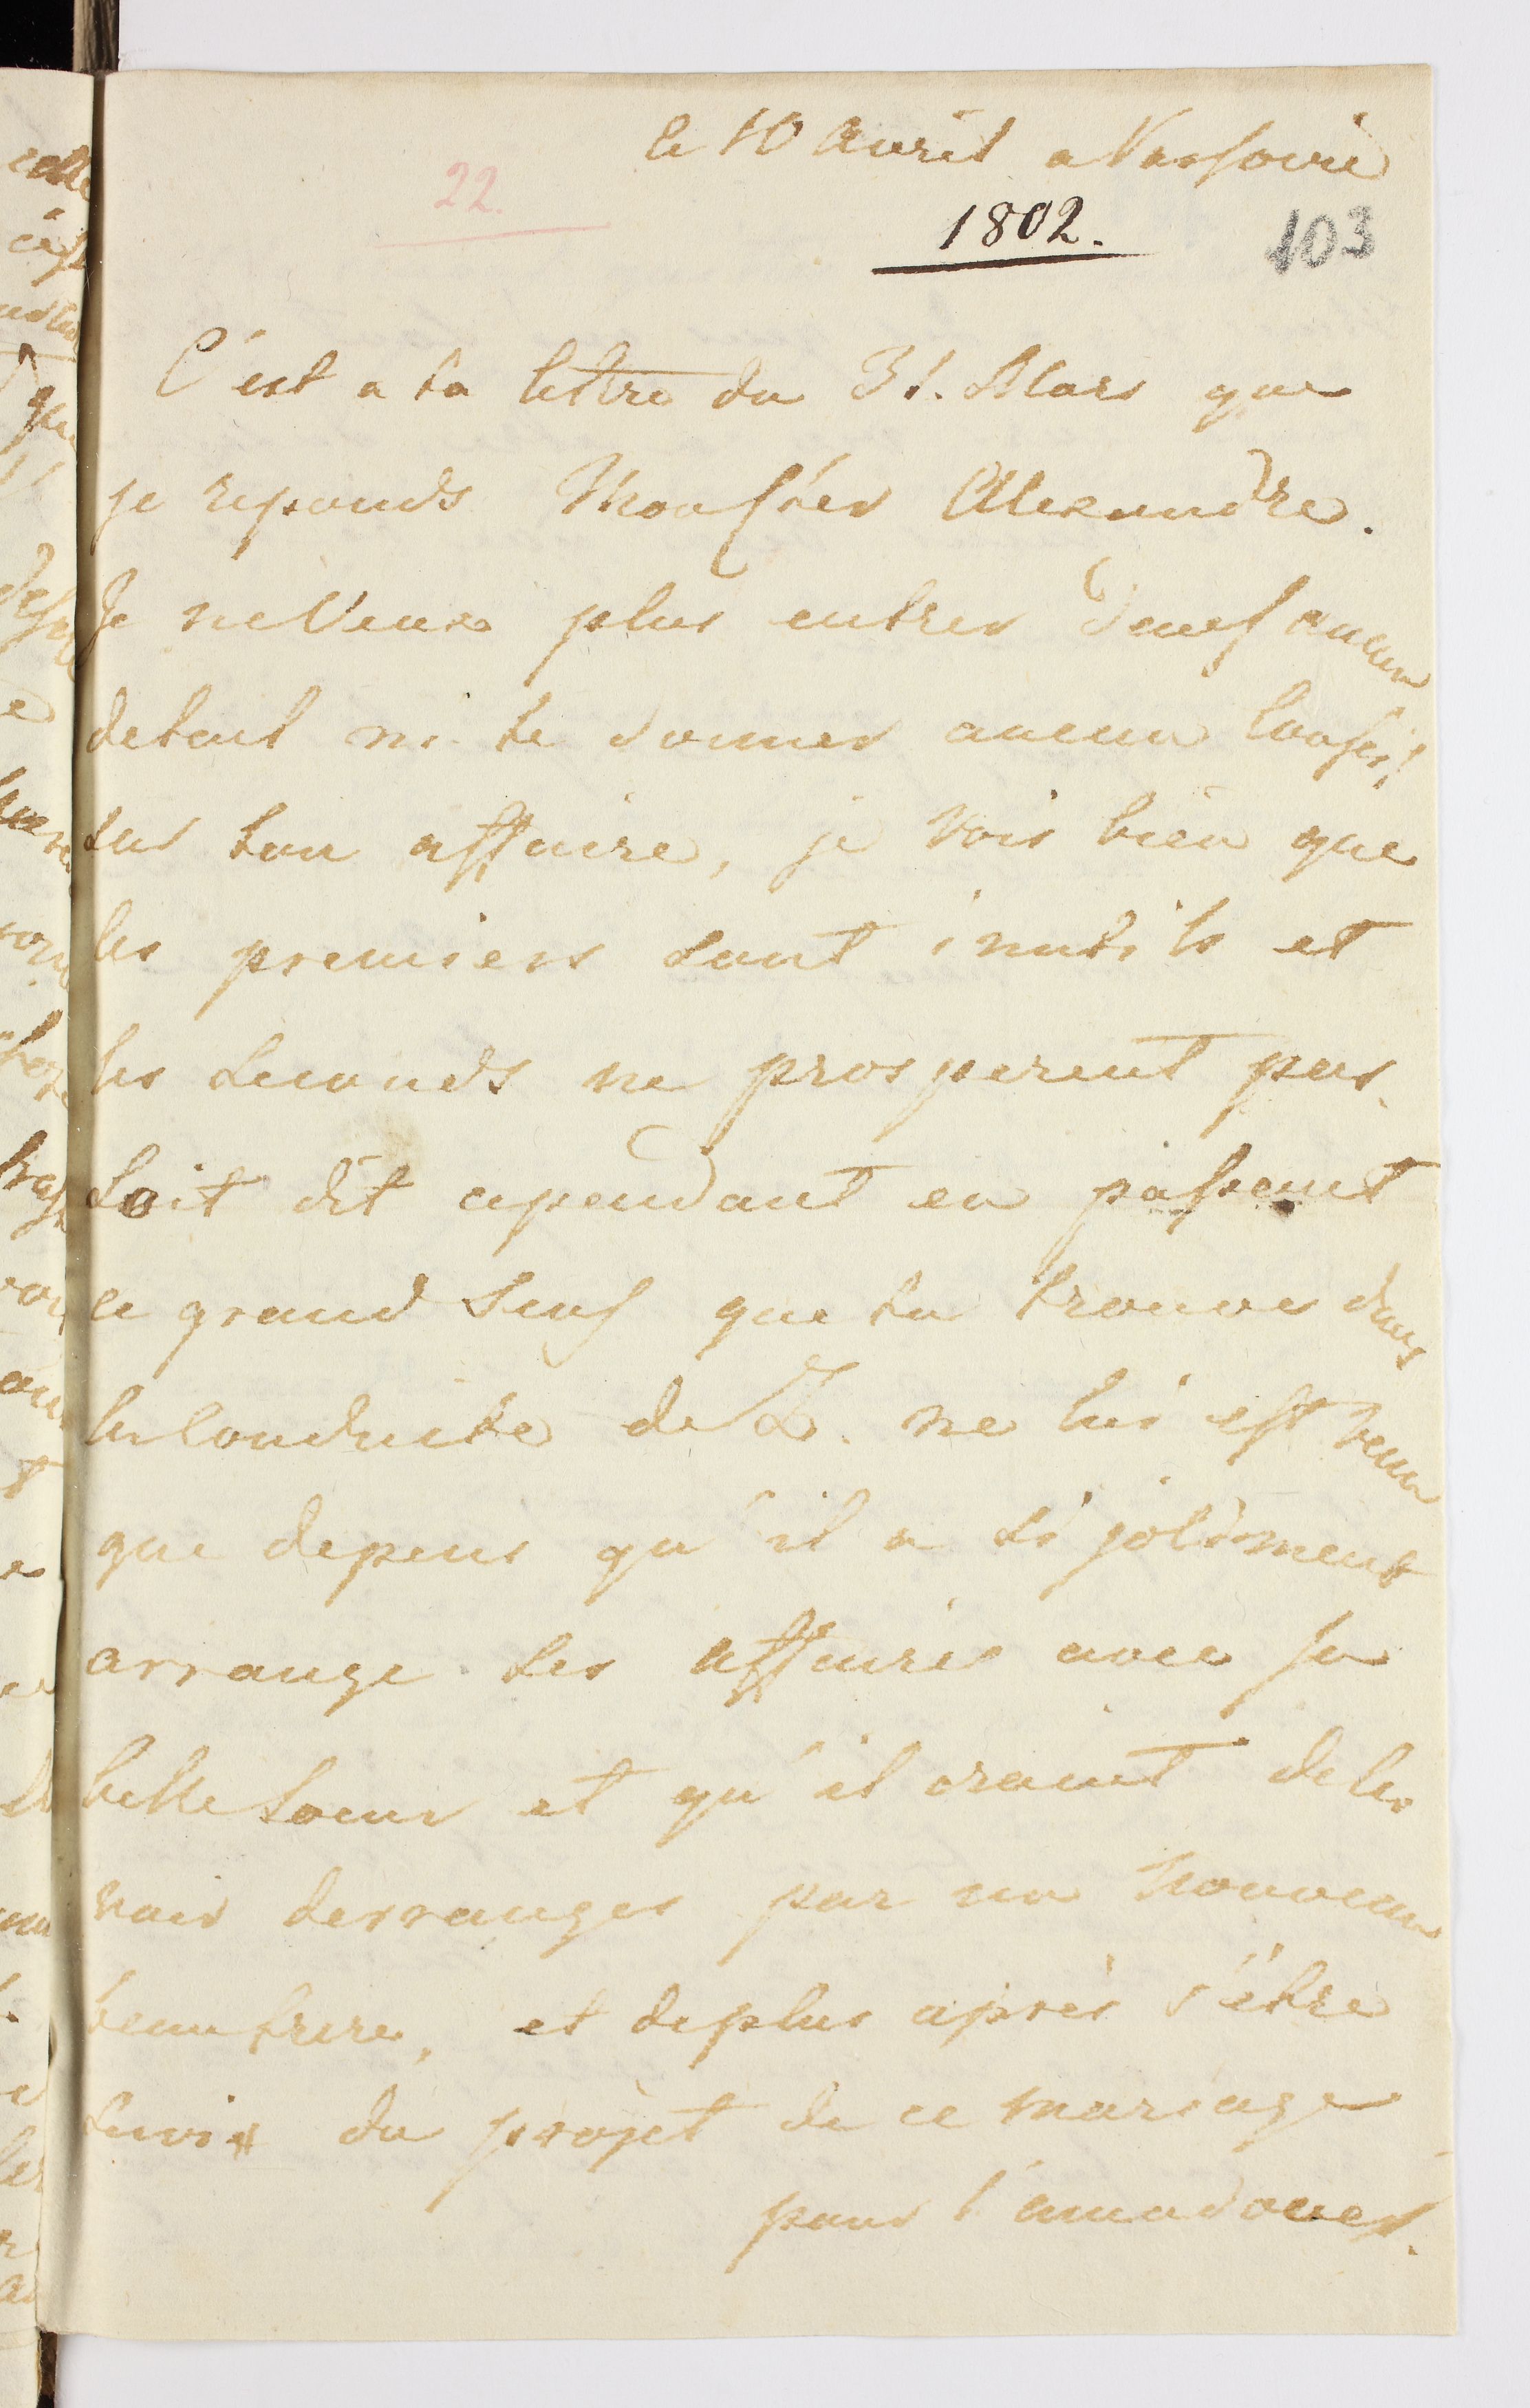 le 10 Avril a Varsovie
22.
1802.
103
C'est a ta lettre du 31. Mars que
je reponds Mon cher Alexandre.
Je ne Veux plus entrer dens aucun
detail ni te donner aucun Conseil
sur ton affaire, je vois bien que
les premiers sont inutils et
les seconds ne prosperent pas.
Soit dit cependant en passent
ce grand sens que tu trouves dans
la Conduite de Z. ne lui est venu
que depuis qu'il a si joliment
arrangé ses affaires avec sa
belle soeur et qu'il craint de les
voir derranger par un nouveau
beau frere, et de plus après s'être
servi du projet de ce mariage
pour l'amadouer.